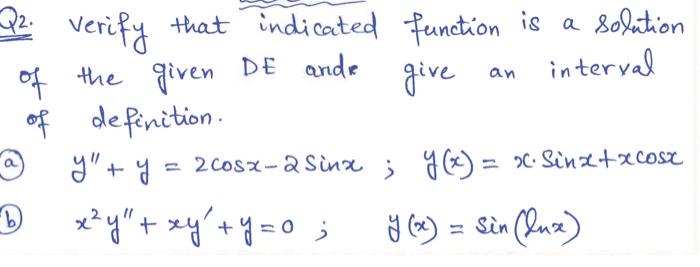 Q2. verify that indicated function is a solution
of the given DE and give an interval
of definition.
(a) y'' + y = 2cosx - 2 Sinx ; y(x) = x. Sinx + xcosx
(b) x²y'' + xy' + y = 0 ; y(x) = Sin(lnx)